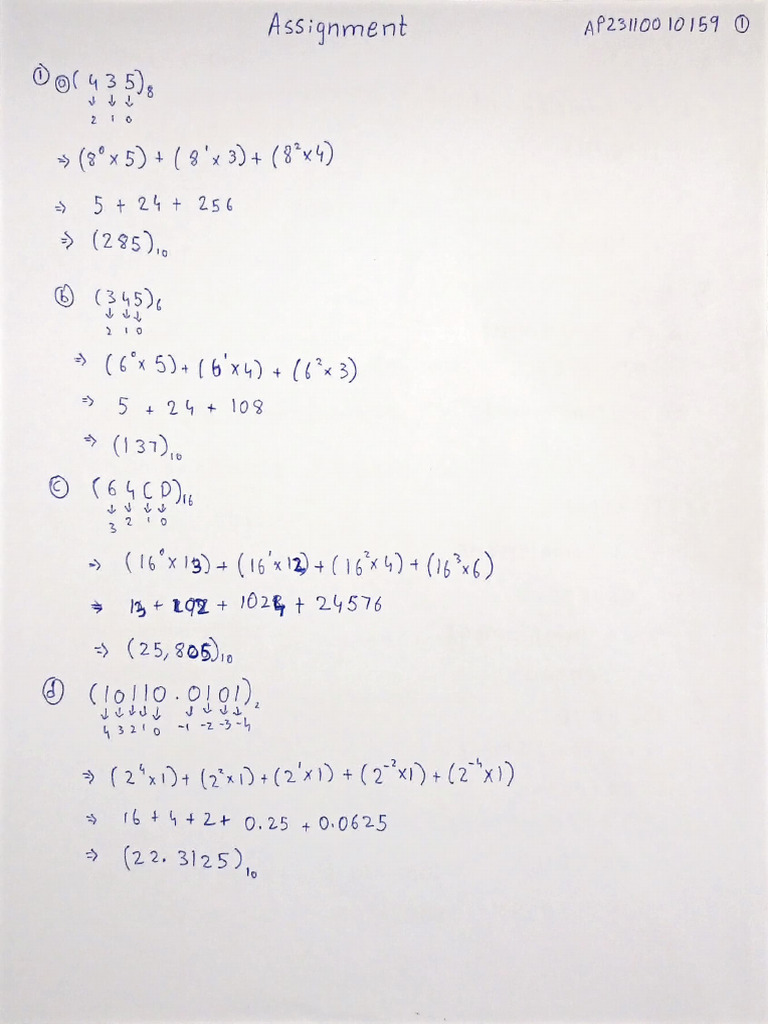 Assignment AP23110010159 ①
① ⓐ (435)₈
↓ ↓ ↓
2 1 0
⇒ (8⁰ × 5) + (8¹ × 3) + (8² × 4)
⇒ 5 + 24 + 256
⇒ (285)₁₀
ⓑ (345)₆
↓ ↓ ↓
2 1 0
⇒ (6⁰ × 5) + (6¹ × 4) + (6² × 3)
⇒ 5 + 24 + 108
⇒ (137)₁₀
ⓒ (64CD)₁₆
↓ ↓ ↓ ↓
3 2 1 0
⇒ (16⁰ × 13) + (16¹ × 12) + (16² × 4) + (16³ × 6)
⇒ 13 + 192 + 1024 + 24576
⇒ (25,805)₁₀
ⓓ (10110.0101)₂
↓ ↓ ↓ ↓ ↓ ↓ ↓ ↓ ↓
4 3 2 1 0 -1 -2 -3 -4
⇒ (2⁴ × 1) + (2² × 1) + (2¹ × 1) + (2⁻² × 1) + (2⁻⁴ × 1)
⇒ 16 + 4 + 2 + 0.25 + 0.0625
⇒ (22.3125)₁₀